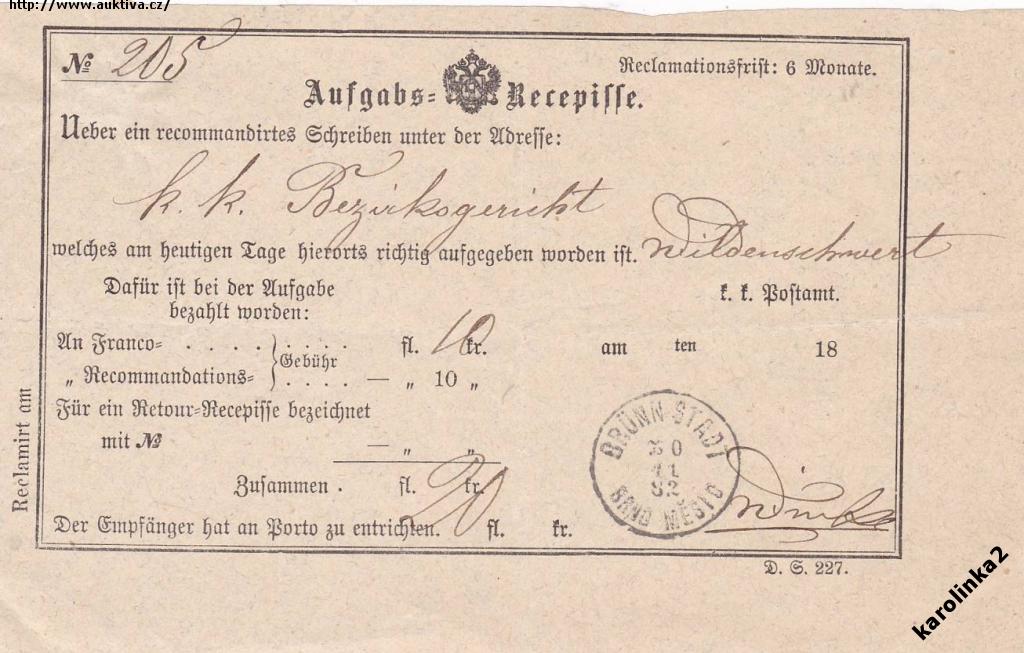 http://www.auktiva.cz/
№ 205
Reclamationsfrist: 6 Monate.
Aufgabs= Recepisse.
Ueber ein recommandirtes Schreiben unter der Adresse:
k. k. Bezirksgericht
welches am heutigen Tage hierorts richtig aufgegeben worden ist. Wildenschwert
Dafür ist bei der Aufgabe
bezahlt worden:
k. k. Postamt.
An Franco= . . . . . . . . fl. 10 kr.
Gebühr
am ten 18
„ Recommandations= . . . . — „ 10 „
Für ein Retour=Recepisse bezeichnet
mit № — „ „
Zusammen . fl. 20 kr.
Der Empfänger hat an Porto zu entrichten. fl. kr.
BRÜNN STADT
30
11
82
BRNO MĚSTO
Reclamirt am
D. S. 227.
karolinka2